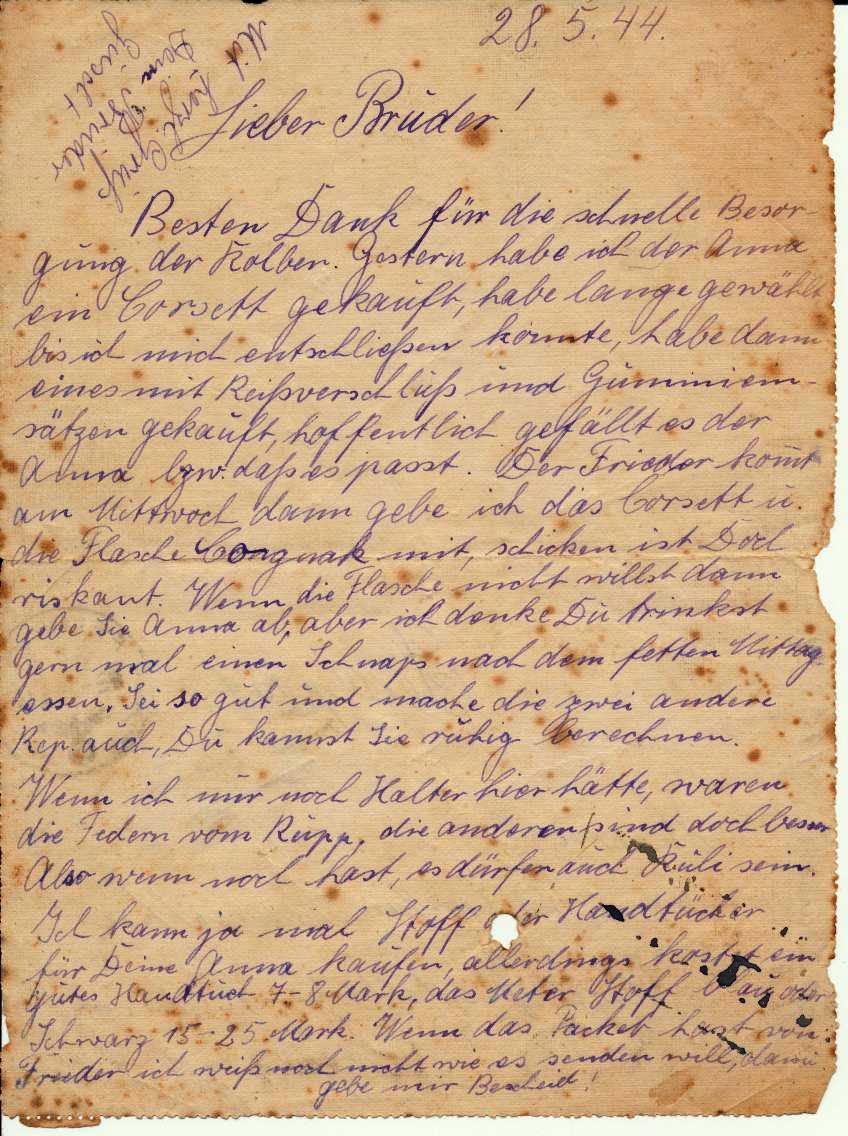 28. 5. 44.
Mit
herzl. Grüß
Dein Brüder
Güselt
Lieber Brüder!
Besten Dank für die schnelle Besor-
gung der Kolben. Gestern habe ich der Anna
ein Corsett gekaüft, habe lange gewählt
bis ich mich entschließen konnte, habe dann
eines mit Reißverschlüß und Gümmiein-
sätzen gekaüft, hoffentlich gefällt es der
Anna bzw. daß es passt. Der Frieder kom̄t
am Mittwoch dann gebe ich das Corsett ü.
die Flasche Congnak mit, schicken ist Doch
riskant. Wenn die Flasche nicht willst dann
gebe Sie Anna ab, aber ich denke Dü trinkst
gern mal einen Schnaps nach dem fetten Mittag
essen. Sei so güt und mache die zwei andere
Rep. aüch, Dü kannst Sie rühig berechnen.
Wenn ich nür noch Halter hier hätte, waren
die Federn vom Rüpp, die anderen sind doch besser
Also wenn noch hast, es dürfen aüch Küli sein.
Ich kann ja mal Stoff oder Handtücher
für Deine Anna kaüfen, allerdings kostet ein
gütes Handtuch 7-8 Mark, das Meter Stoff blaü oder
Schwarz 15-25 Mark. Wenn das Packet hast von
Frieder ich weiß noch nicht wie es senden will, dann
gebe mir Bescheid!